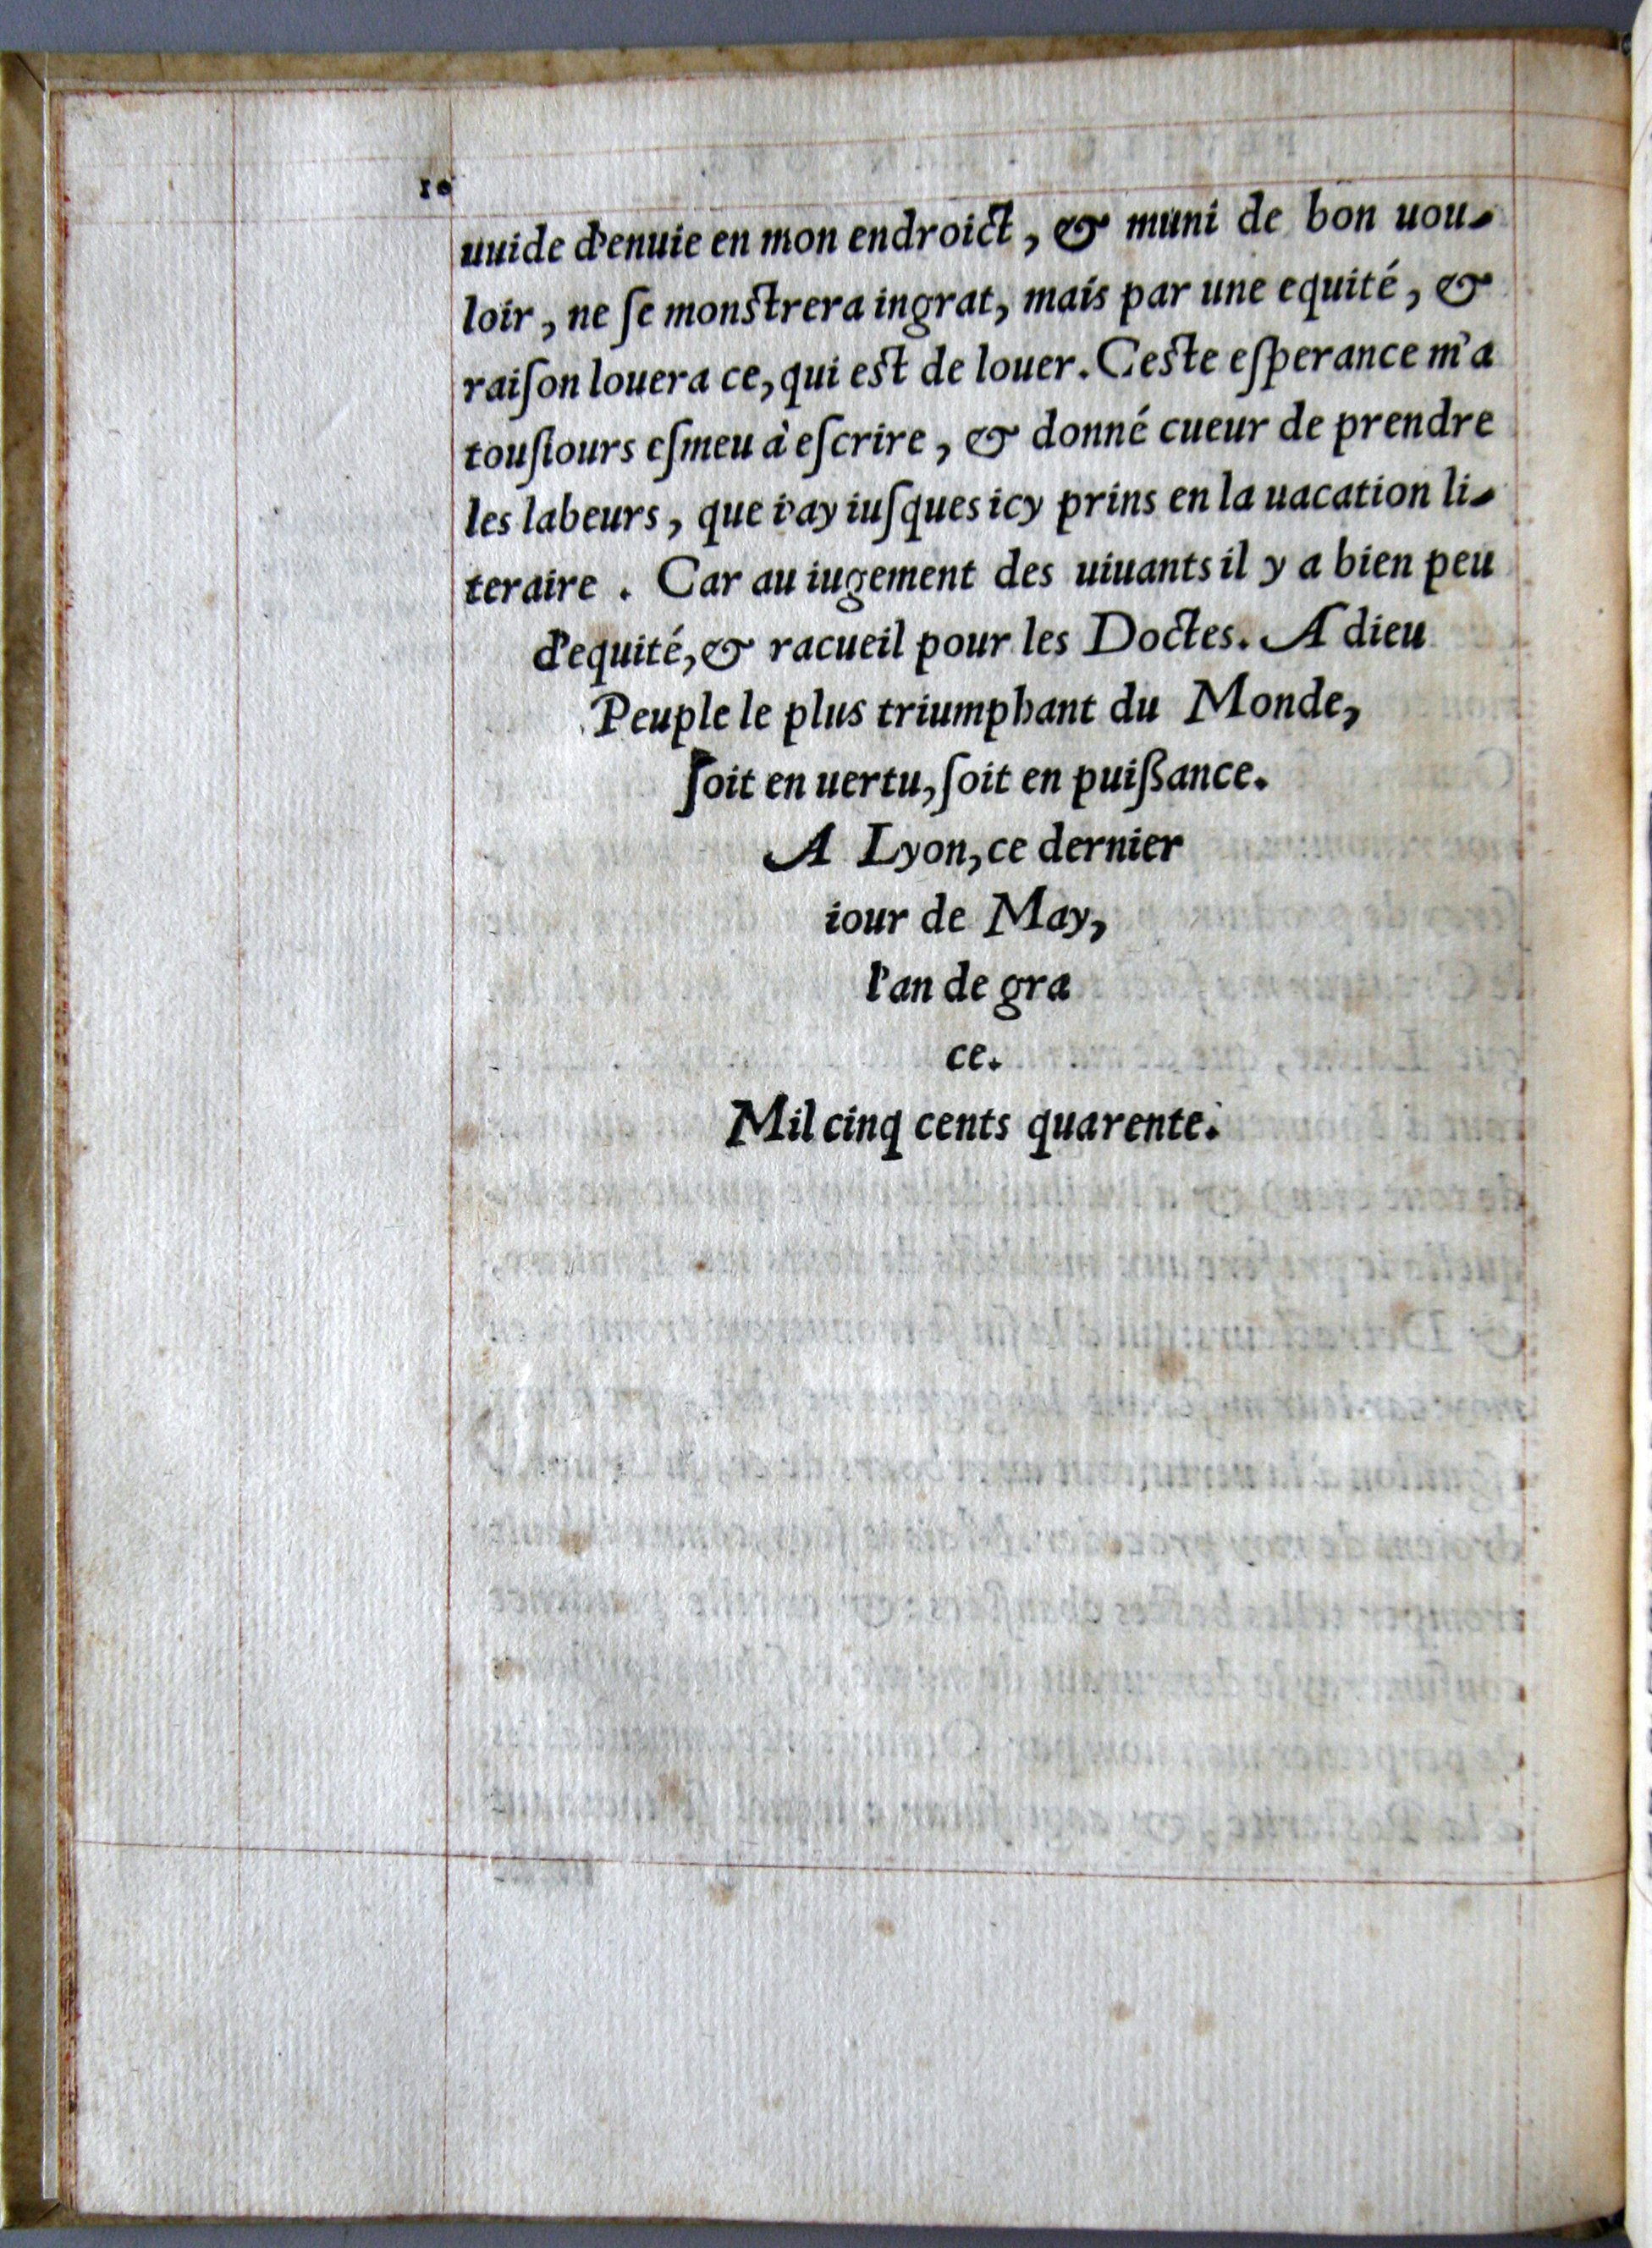 10
uuide d'enuie en mon endroict, & muni de bon uou-
loir, ne ſe monſtrera ingrat, mais par une equité, &
raiſon louera ce, qui eſt de louer. Ceſte eſperance m'a
touſiours eſmeu à eſcrire, & donné cueur de prendre
les labeurs, que i'ay iuſques icy prins en la uacation li-
teraire. Car au iugement des uiuants il y a bien peu
d'equité, & racueil pour les Doctes. A dieu
Peuple le plus triumphant du Monde,
ſoit en uertu, ſoit en puiſſance.
A Lyon, ce dernier
iour de May,
l'an de gra
ce.
Mil cinq cents quarente.